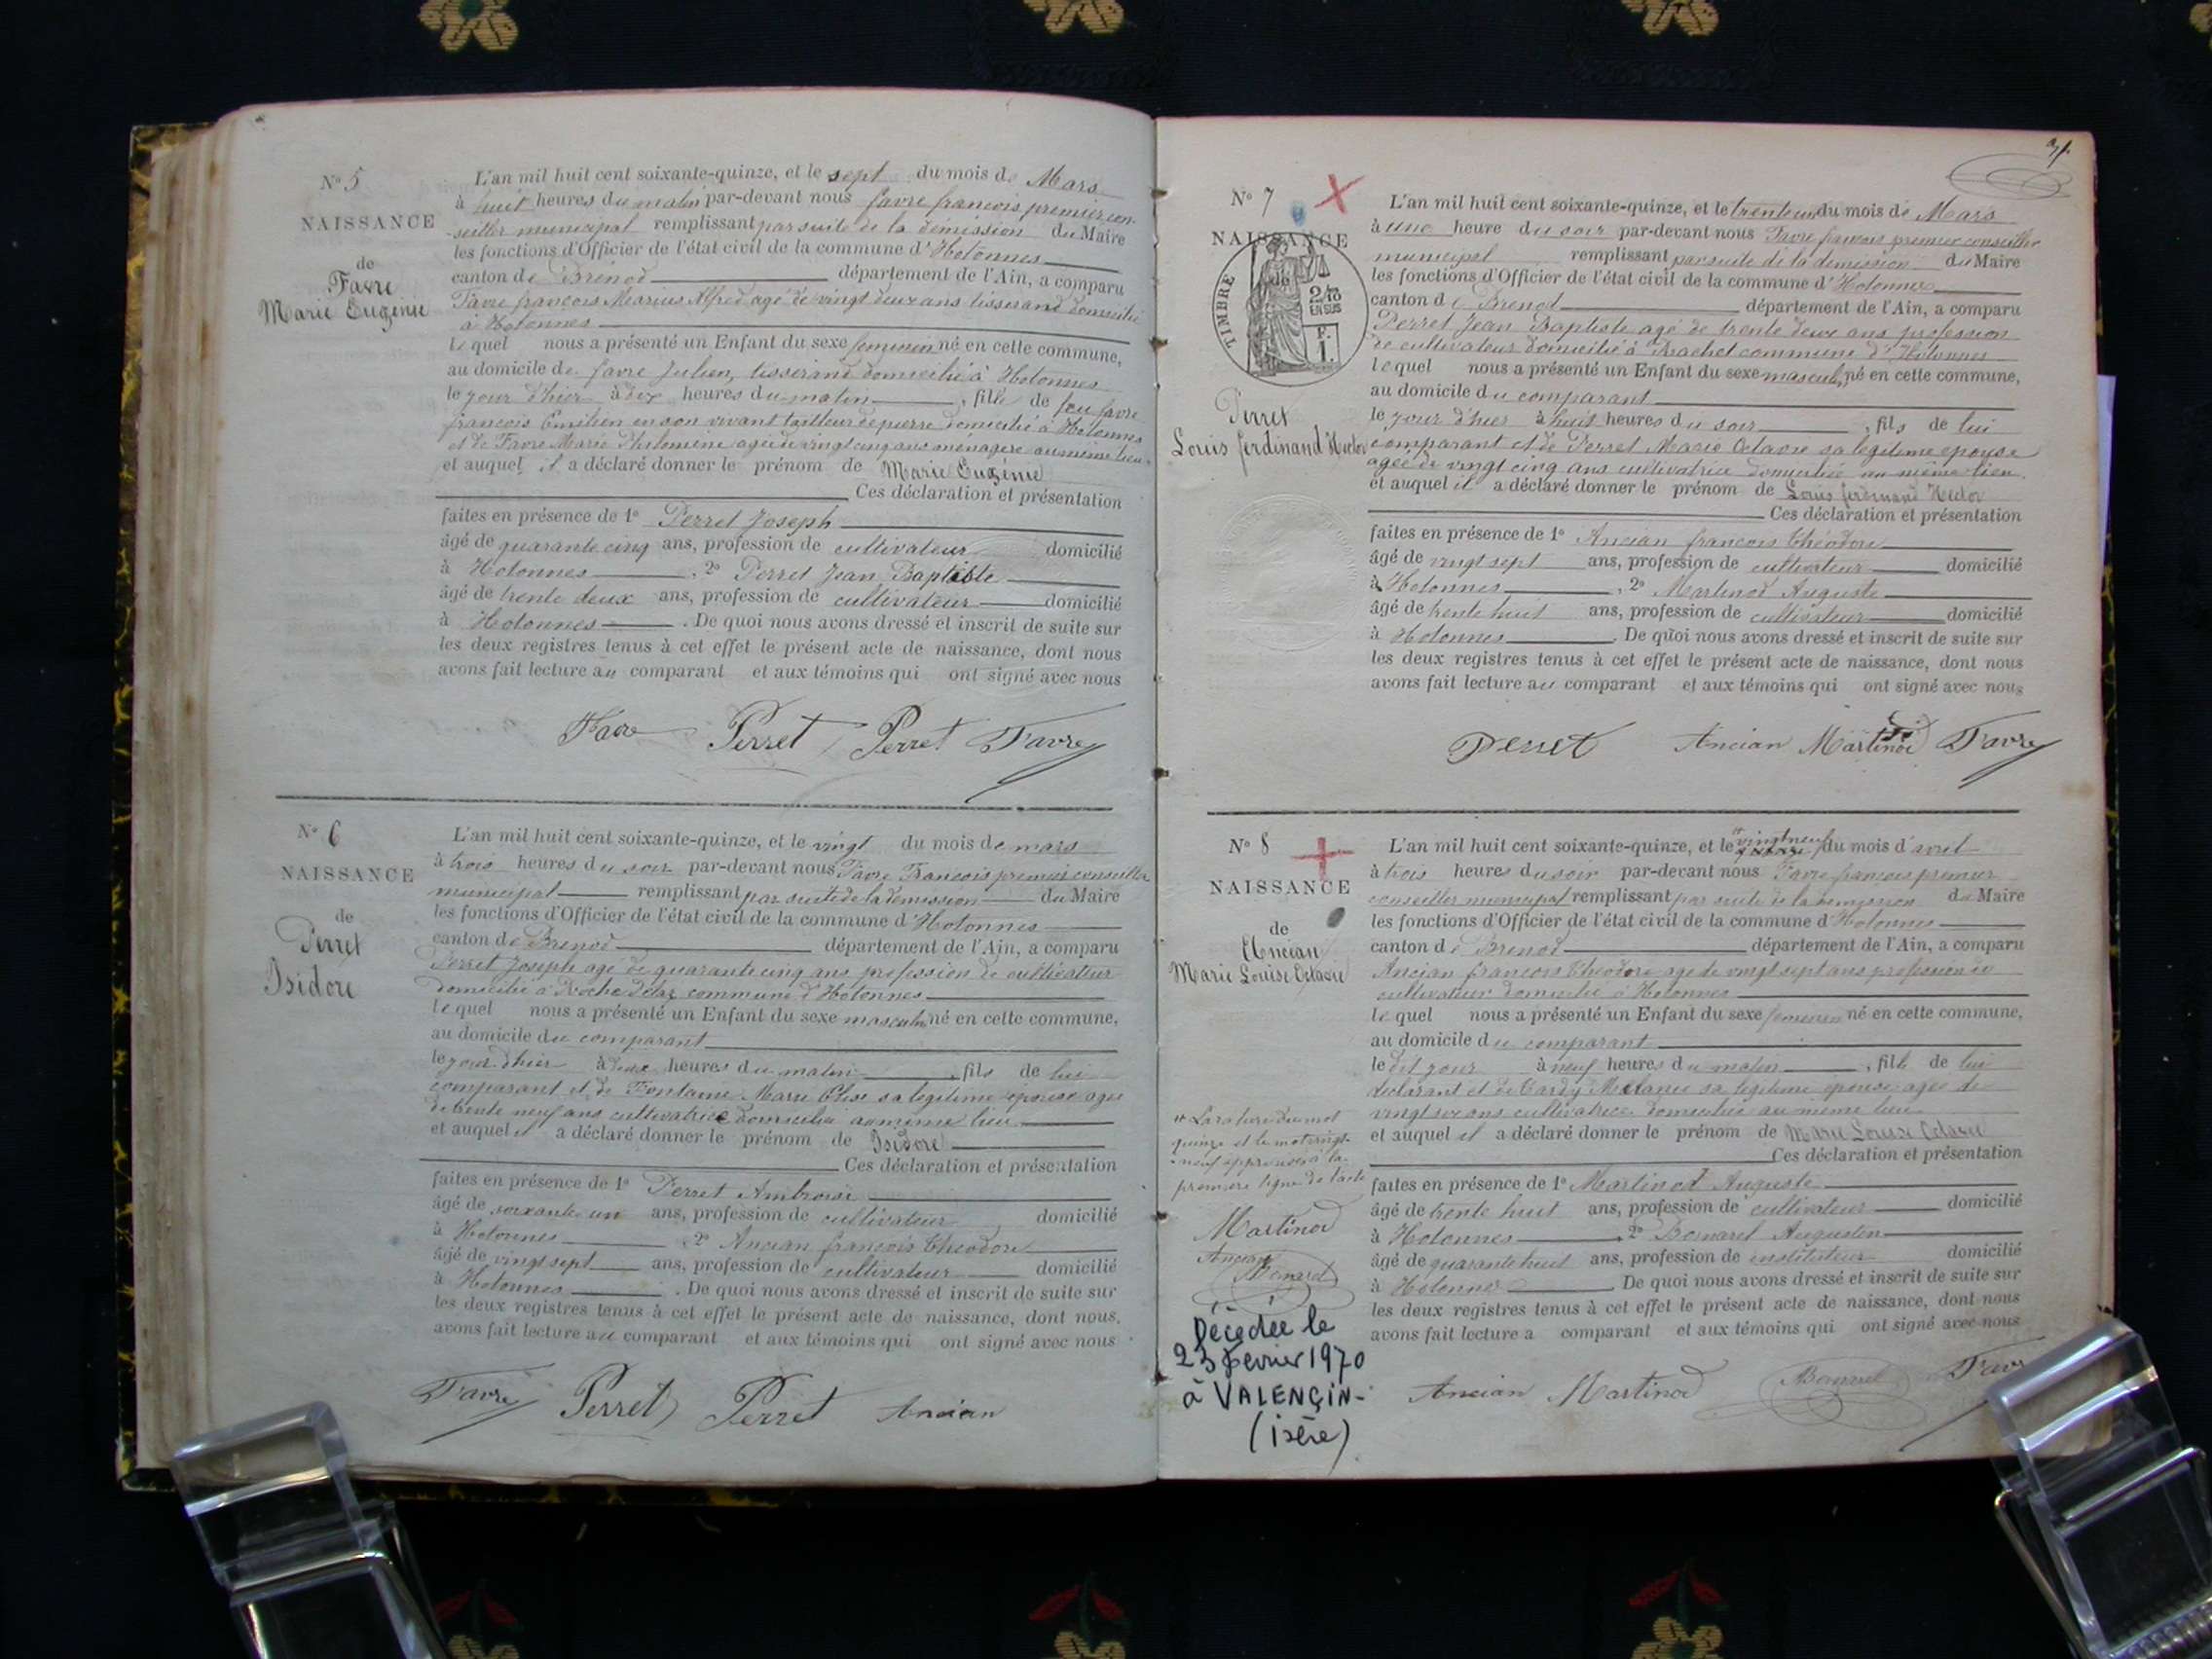 N° 5
NAISSANCE
de
Favre
Marie Eugénie
L'an mil huit cent soixante-quinze, et le sept du mois de Mars
à huit heures du matin par-devant nous favre francois premier con-
-seiller municipal remplissant par suite de la démission du Maire
les fonctions d'Officier de l'état civil de la commune d'Hotonnes
canton de Brénod département de l'Ain, a comparu
Favre françois Marius Alfred agé de vingt deux ans tisserand domicilié
à Hotonnes
Lequel nous a présenté un Enfant du sexe feminin né en cette commune,
au domicile de favre Julien, tisserand domicilié à Hotonnes
le jour d'hier à dix heures du matin, fille de feu favre
françois Emilien en son vivant tailleur de pierre domicilié à Hotonnes
et de Favre Marie Philomène agée de vingt cinq ans ménagère au même lieu
et auquel il a déclaré donner le prénom de Marie Eugénie
Ces déclaration et présentation
faites en présence de 1° Perret Joseph
âgé de quarante cinq ans, profession de cultivateur domicilié
à Hotonnes, 2° Perret Jean Baptiste
âgé de trente deux ans, profession de cultivateur domicilié
à Hotonnes. De quoi nous avons dressé et inscrit de suite sur
les deux registres tenus à cet effet le présent acte de naissance, dont nous
avons fait lecture au comparant et aux témoins qui ont signé avec nous
Favre Perret Perret Favre
N° 6
NAISSANCE
de
Perret
Isidore
L'an mil huit cent soixante-quinze, et le vingt du mois de mars
à trois heures du soir par-devant nous Favre Francois premier conseiller
municipal remplissant par suite de la démission du Maire
les fonctions d'Officier de l'état civil de la commune d'Hotonnes
canton de Brenod département de l'Ain, a comparu
Perret Joseph agé de quarante cinq ans profession de cultivateur
domicilié à commune d'Hotonnes
Lequel nous a présenté un Enfant du sexe masculin né en cette commune,
au domicile du comparant
le jour d'hier à heures du matin, fils de lui
comparant et de Fontaine Marie Elise sa légitime épouse agée
de trente neuf ans cultivatrice domiciliée au même lieu
et auquel il a déclaré donner le prénom de Isidore
Ces déclaration et présentation
faites en présence de 1° Perret Ambroise
âgé de soixante un ans, profession de cultivateur domicilié
à Hotonnes, 2° Ancian françois Théodore
âgé de vingt sept ans, profession de cultivateur domicilié
à Hotonnes. De quoi nous avons dressé et inscrit de suite sur
les deux registres tenus à cet effet le présent acte de naissance, dont nous,
avons fait lecture au comparant et aux témoins qui ont signé avec nous
Favre Perret Perret Ancian
N° 7
NAISSANCE
de
TIMBRE
2/10
EN SUS
F.
1.
Perret
Louis ferdinand Hector
L'an mil huit cent soixante-quinze, et le trente un du mois de Mars
à une heure du soir par-devant nous Favre françois premier conseiller
municipal remplissant par suite de la démission du Maire
les fonctions d'Officier de l'état civil de la commune d'Hotonnes
canton de Brenod département de l'Ain, a comparu
Perret Jean Baptiste agé de trente deux ans profession
de cultivateur domicilié à commune d'Hotonnes
lequel nous a présenté un Enfant du sexe masculin né en cette commune,
au domicile du comparant
le jour d'hier à huit heures du soir, fils de lui
comparant et de Perret Marie Octavie sa légitime épouse
agée de vingt cinq ans cultivatrice domiciliée au même lieu
et auquel il a déclaré donner le prénom de Louis ferdinand Hector
Ces déclaration et présentation
faites en présence de 1° Ancian francois théodore
âgé de vingt sept ans, profession de cultivateur domicilié
à Hotonnes, 2° Martinod Auguste
âgé de trente huit ans, profession de cultivateur domicilié
à Hotonnes. De quoi nous avons dressé et inscrit de suite sur
les deux registres tenus à cet effet le présent acte de naissance, dont nous
avons fait lecture au comparant et aux témoins qui ont signé avec nous
Perret Ancian Martinod Favre
N° 8
NAISSANCE
de
Ancian
Marie Louise Octavie
L'an mil huit cent soixante-quinze, et le vingt neuf du mois d'avril
à trois heures du soir par-devant nous Favre françois premier
conseiller municipal remplissant par suite de la démission du Maire
les fonctions d'Officier de l'état civil de la commune d'Hotonnes
canton de Brenod département de l'Ain, a comparu
Ancian francois Théodore agé de vingt sept ans profession de
cultivateur domicilié à Hotonnes
lequel nous a présenté un Enfant du sexe feminin né en cette commune,
au domicile du comparant
le dit jour à neuf heures du matin, fille de lui
déclarant et de Mélanie sa légitime épouse agée de
vingt six ans cultivatrice domiciliée au même lieu
et auquel il a déclaré donner le prénom de Marie Louise Octavie
Ces déclaration et présentation
faites en présence de 1° Martinod Auguste
âgé de trente huit ans, profession de cultivateur domicilié
à Hotonnes, 2° Augustin
âgé de quarante huit ans, profession de instituteur domicilié
à Hotonnes. De quoi nous avons dressé et inscrit de suite sur
les deux registres tenus à cet effet le présent acte de naissance, dont nous
avons fait lecture a comparant et aux témoins qui ont signé avec nous
La rature du mot
quinze et le mot vingt-
neuf approuvés à la
première ligne de l'acte
Martinod
Ancian
Décédée le
23 février 1970
à VALENÇIN-
(isère)
Ancian Martinod Favre